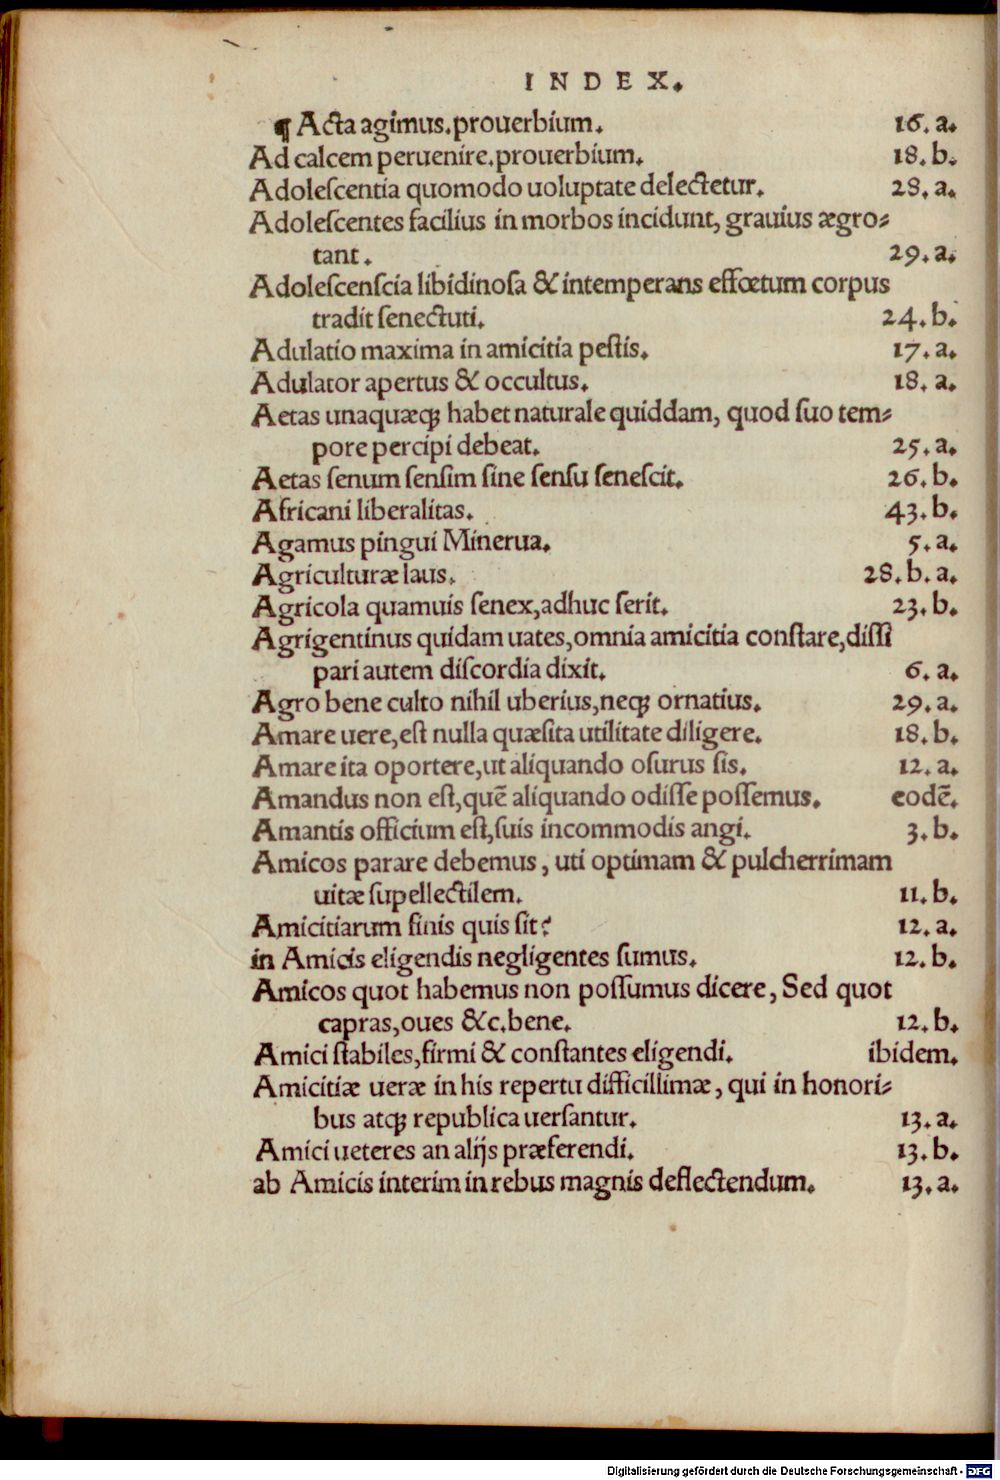 INDEX.
¶ Acta agimus.prouerbium. 16. a.
Ad calcem peruenire.prouerbium. 18. b.
Adoleſcentia quomodo uoluptate delectetur. 28. a.
Adoleſcentes facilius in morbos incidunt, grauius ægro⸗
tant. 29. a.
Adoleſcenſcia libidinoſa & intemperans effœtum corpus
tradit ſenectuti. 24. b.
Adulatio maxima in amicitia peſtis. 17. a.
Adulator apertus & occultus. 18. a.
Aetas unaquæqꝫ habet naturale quiddam, quod ſuo tem⸗
pore percipi debeat. 25. a.
Aetas ſenum ſenſim ſine ſenſu ſeneſcit. 26. b.
Africani liberalitas. 43. b.
Agamus pingui Minerua. 5. a.
Agriculturæ laus. 28. b. a.
Agricola quamuis ſenex,adhuc ſerit. 23. b.
Agrigentinus quidam uates,omnia amicitia conſtare,diſſi
pari autem diſcordia dixit. 6. a.
Agro bene culto nihil uberius,neqꝫ ornatius. 29. a.
Amare uere,eſt nulla quæſita utilitate diligere. 18. b.
Amare ita oportere,ut aliquando oſurus ſis. 12. a.
Amandus non eſt,quẽ aliquando odiſſe poſſemus. eodẽ.
Amantis officium eſt,ſuis incommodis angi. 3. b.
Amicos parare debemus, uti optimam & pulcherrimam
uitæ ſupellectilem. 11. b.
Amicitiarum finis quis ſit? 12. a.
in Amicis eligendis negligentes ſumus. 12. b.
Amicos quot habemus non poſſumus dicere, Sed quot
capras,oues &c.bene. 12. b.
Amici ſtabiles,firmi & conſtantes eligendi. ibidem.
Amicitiæ ueræ in his repertu difficillimæ, qui in honori⸗
bus atqꝫ republica uerſantur. 13. a.
Amici ueteres an alijs præferendi. 13. b.
ab Amicis interim in rebus magnis deflectendum. 13. a.
Digitalisierung gefördert durch die Deutsche Forschungsgemeinschaft - DFG